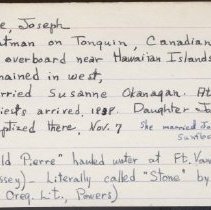 e, Joseph
atman on Tonquin, Canadian
overboard near Hawaiian Islands
mained in west,
rried Susanne Okanagan. At
iests arrived, 1838. Daughter J
ptized there, Nov. 7 She married Jo
ld Pierre" handed water at Ft. Van
ssey) - Literally called "Stone" by
Oreg. Lt., Powers)